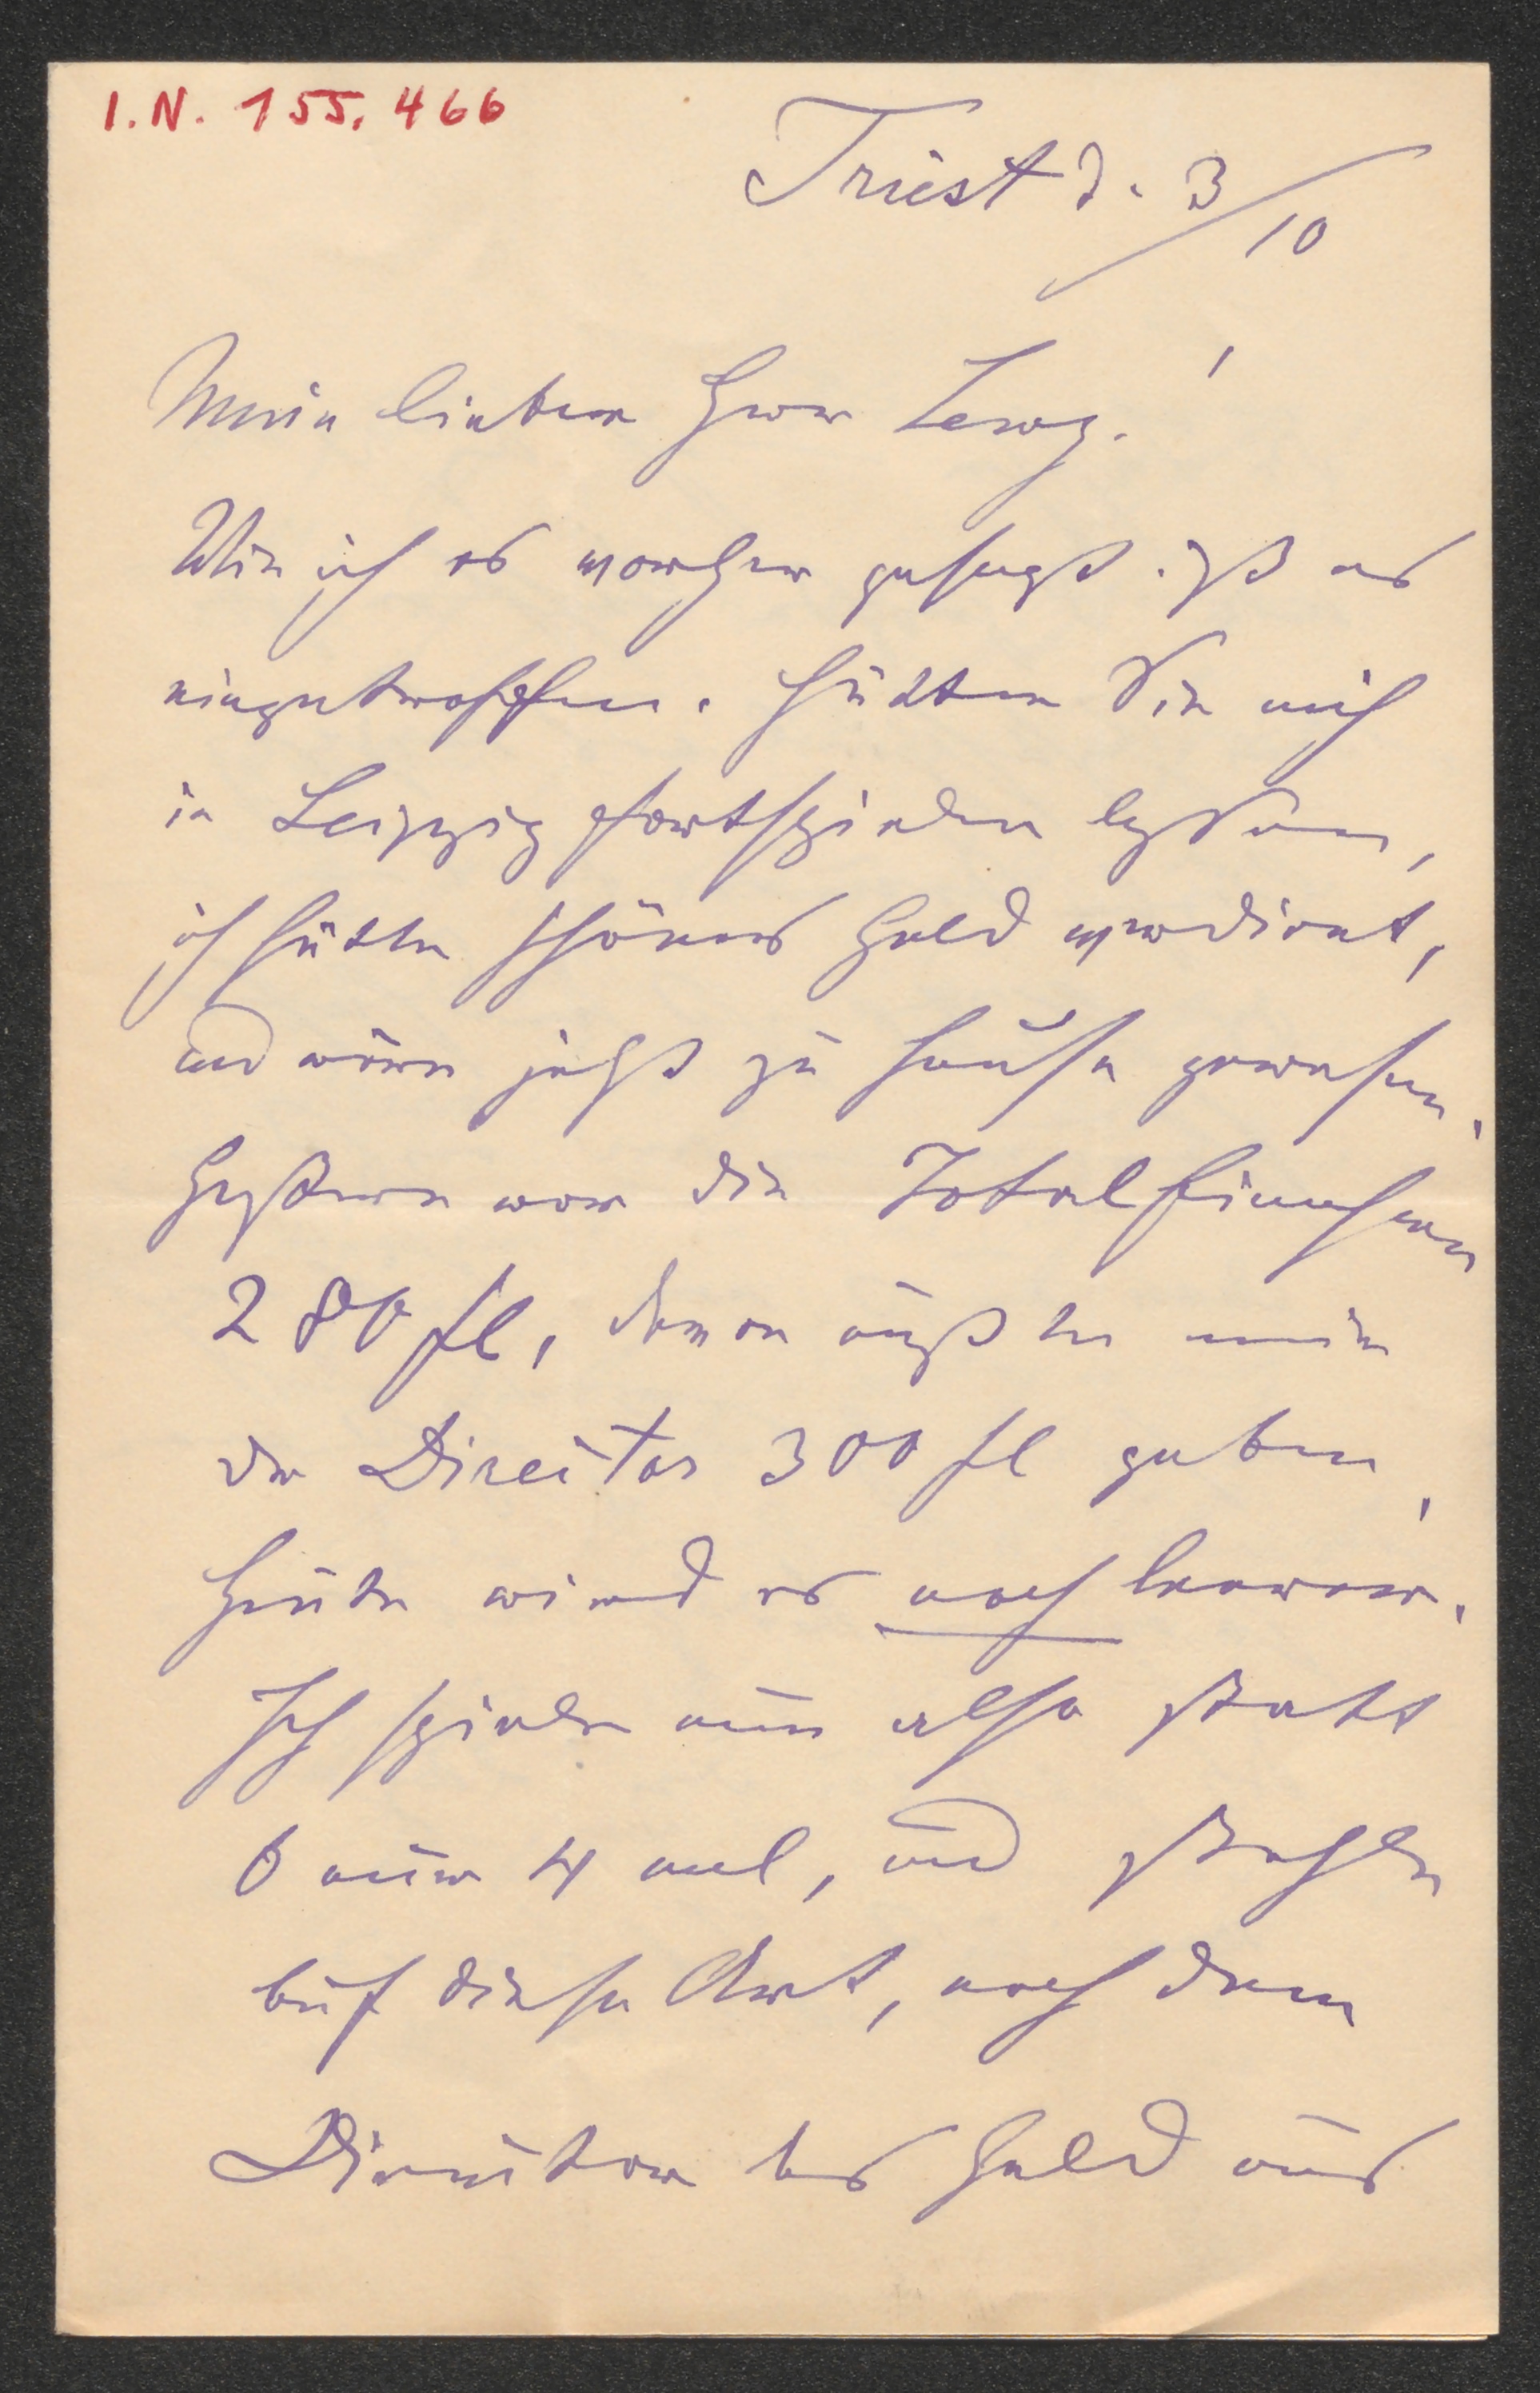 I.N. 155.466
Triest d. 3/10
Mein lieber Herr Lewy!
Wie ich es vorher gesagt ist es
eingetroffen. Hätten Sie mich
in Leipzig fortspielen lassen,
ich hätte schönes Geld verdient,
und wäre jetzt zu Hause gewesen.
Gestern war die Totaleinnahme
280 fl, davon mußte mir
der Direitor 300 fl geben,
Heute wird es noch leerer.
Ich spiele nun also statt
6 nur 4 mal, und stehle
auf diese Art, noch dem
Direitor das Geld aus